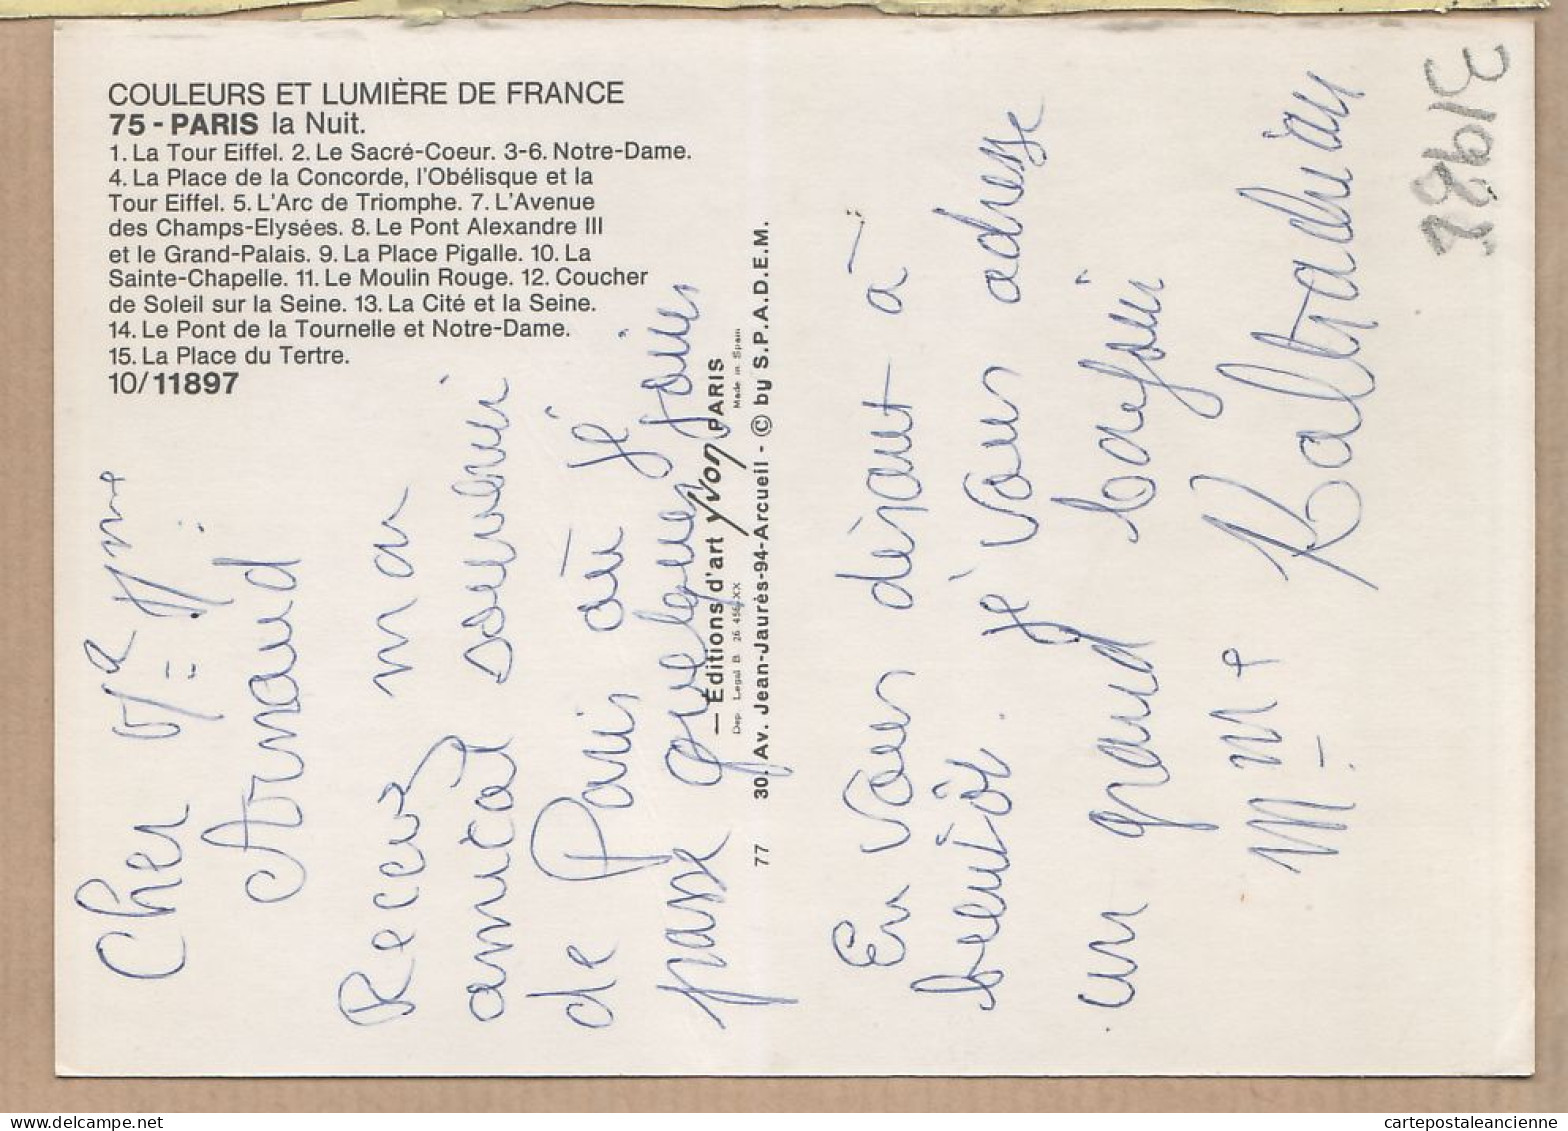 COULEURS ET LUMIÈRE DE FRANCE
75 - PARIS la Nuit.
1. La Tour Eiffel. 2. Le Sacré-Coeur. 3-6. Notre-Dame.
4. La Place de la Concorde, l'Obélisque et la
Tour Eiffel. 5. L'Arc de Triomphe. 7. L'Avenue
des Champs-Elysées. 8. Le Pont Alexandre III
et le Grand-Palais. 9. La Place Pigalle. 10. La
Sainte-Chapelle. 11. Le Moulin Rouge. 12. Coucher
de Soleil sur la Seine. 13. La Cité et la Seine.
14. Le Pont de la Tournelle et Notre-Dame.
15. La Place du Tertre.
10/11897
— Editions d'art yvon PARIS
Dep. Legal B. 26 456-XX
Made in Spain
77 30. Av. Jean-Jaurès-94-Arcueil - © by S.P.A.D.E.M.
Cher
Arnaud
Recevez ma
amical souvenir
de Paris où je
passe quelques jours
En vous disant à
bientôt. je vous adresse
un grand bonjour
cartepostaleancienne.com